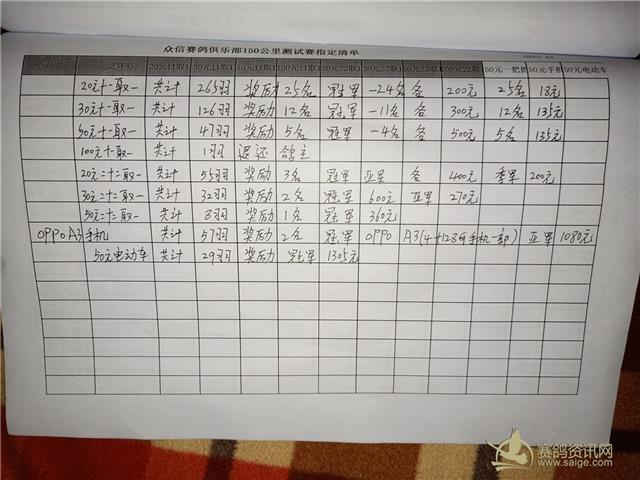 众信赛鸽俱乐部150公里测试赛指定清单
会员名 足环号 20元11取1 30元11取1 50元11取1 100元11取1 20元22取1 30元22取1 50元22取1 100元22取1 50元一把抓 50元手机 50元电动车
20元十一取一 共计 265羽 奖励 25名 冠军 -24名 各 200元 25名 13元
30元十一取一 共计 126羽 奖励 12名 冠军 -11名 各 300元 12名 135元
50元十一取一 共计 47羽 奖励 5名 冠军 -4名 各 500元 5名 135元
100元十取一 共计 1羽 退还 鸽主
20元二十二取一 共计 55羽 奖励 3名 冠军 亚军 各 400元 季军 200元
30元二十二取一 共计 32羽 奖励 2名 冠军 600元 亚军 270元
50元二十二取一 共计 8羽 奖励 1名 冠军 360元
OPPO A3手机 共计 57羽 奖励 2名 冠军 OPPO A3(4+128G手机一部) 亚军 1080元
50元电动车 共计 29羽 奖励 冠军 1305元
赛鸽资讯网
www.saige.com